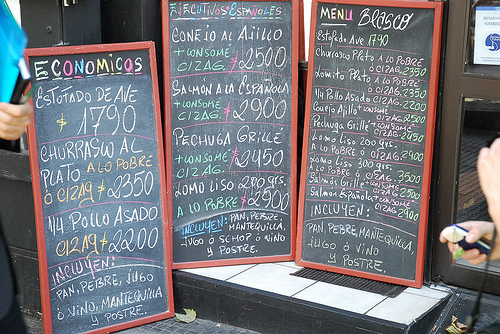 ECONOMICOS
ESTOFADO DE AVE
$ 1790
CHURRASCO AL
PLATO A LO POBRE
Ó C/ZAG $2350
1/4 POLLO ASADO
C/ZAG $2200
INCLUYEN:
PAN, PEBRE, JUGO
Ó VINO, MANTEQUILLA
Y POSTRE.
EJECUTIVOS ESPAÑOLES
CONEJO AL AJILLO
+ CONSOME
C/ZAG. $2500
SALMÓN A LA ESPAÑOLA
+ CONSOME
C/ZAG. $2900
PECHUGA GRILLE
+ CONSOME
C/ZAG. $2450
LOMO LISO 200 grs.
A LO POBRE $2900
INCLUYEN: PAN, PEBRE,
MANTEQUILLA,
JUGO Ó SCHOP Ó VINO
Y POSTRE.
MENU BLASCO
Estofado Ave 1790
Churrasco Plato A LO POBRE
Ó C/ZAG. 2350
Lomito Plato A LO POBRE
Ó C/ZAG. 2350
1/4 Pollo Asado C/ZAG. 2200
Conejo Ajillo + CONSOME C/ZAG. 2500
Pechuga Grille + CONSOME C/ZAG. 2450
Lomo Liso 200 grs.
A LO POBRE Ó C/ZAG. 2900
Lomo Liso 300 grs.
A LO POBRE Ó C/ZAG. 3500
Salmón Grille + CONSOME C/ZAG. 2500
Salmón Española + CONSOME C/ZAG. 2900
INCLUYEN:
PAN, PEBRE, MANTEQUILLA,
JUGO Ó VINO
Y POSTRE.